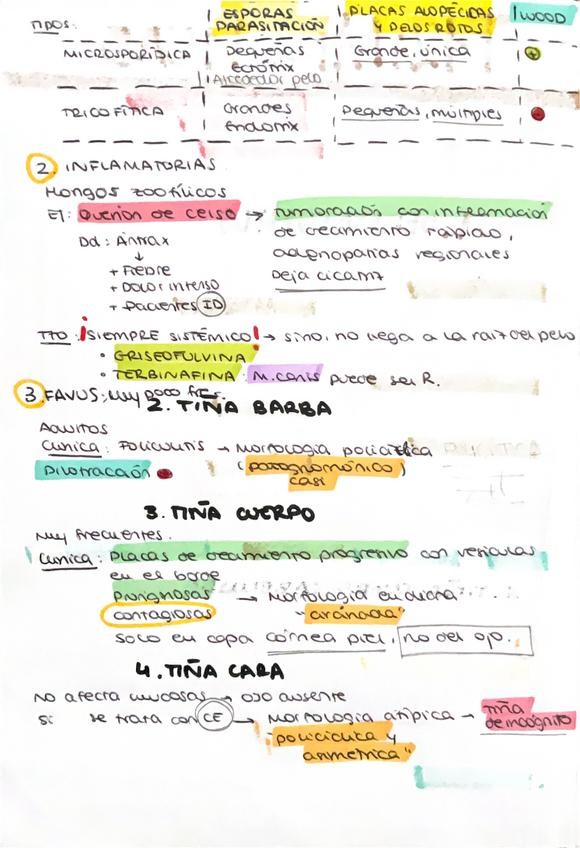 TIPOS: ESPORAS PARASITACIÓN PLACAS ALOPÉCICAS Y PELOS ROTOS WOOD
MICROSPÓRIDICA Pequeñas Ectótrix Alrededor pelo Grande, única +
TRICOFÍTICA Grandes Endotrix Pequeñas, múltiples
2. INFLAMATORIAS
Hongos zoofílicos
EJ: Querion de celso → Tumoraciones con inflamación
de crecimiento rápido,
Dd: Ántrax adenopatías regionales
↓ Deja cicatriz
+ Fiebre
+ Dolor intenso
+ Pacientes ID
TTO: ¡SIEMPRE SISTÉMICO! → sino, no llega a la raíz del pelo
• GRISEOFULVINA
• TERBINAFINA: M. canis puede ser R.
3. FAVUS: Muy poco frec.
2. TIÑA BARBA
Adultos
Clínica: Foliculitis → Morfología policíclica
Pilotracción (patognomónico)
casi
3. TIÑA CUERPO
Muy frecuentes.
Clínica: Placas de crecimiento progresivo con vesículas
en el borde
pruriginosas → Morfología en diana
contagiosas "aránada"
Solo en capa córnea piel, no del ojo.
4. TIÑA CARA
No afecta mucosas → ojo ausente
Si se trata con CE → Morfología atípica → Tiña de incógnito
"policíclica y
arimétrica"